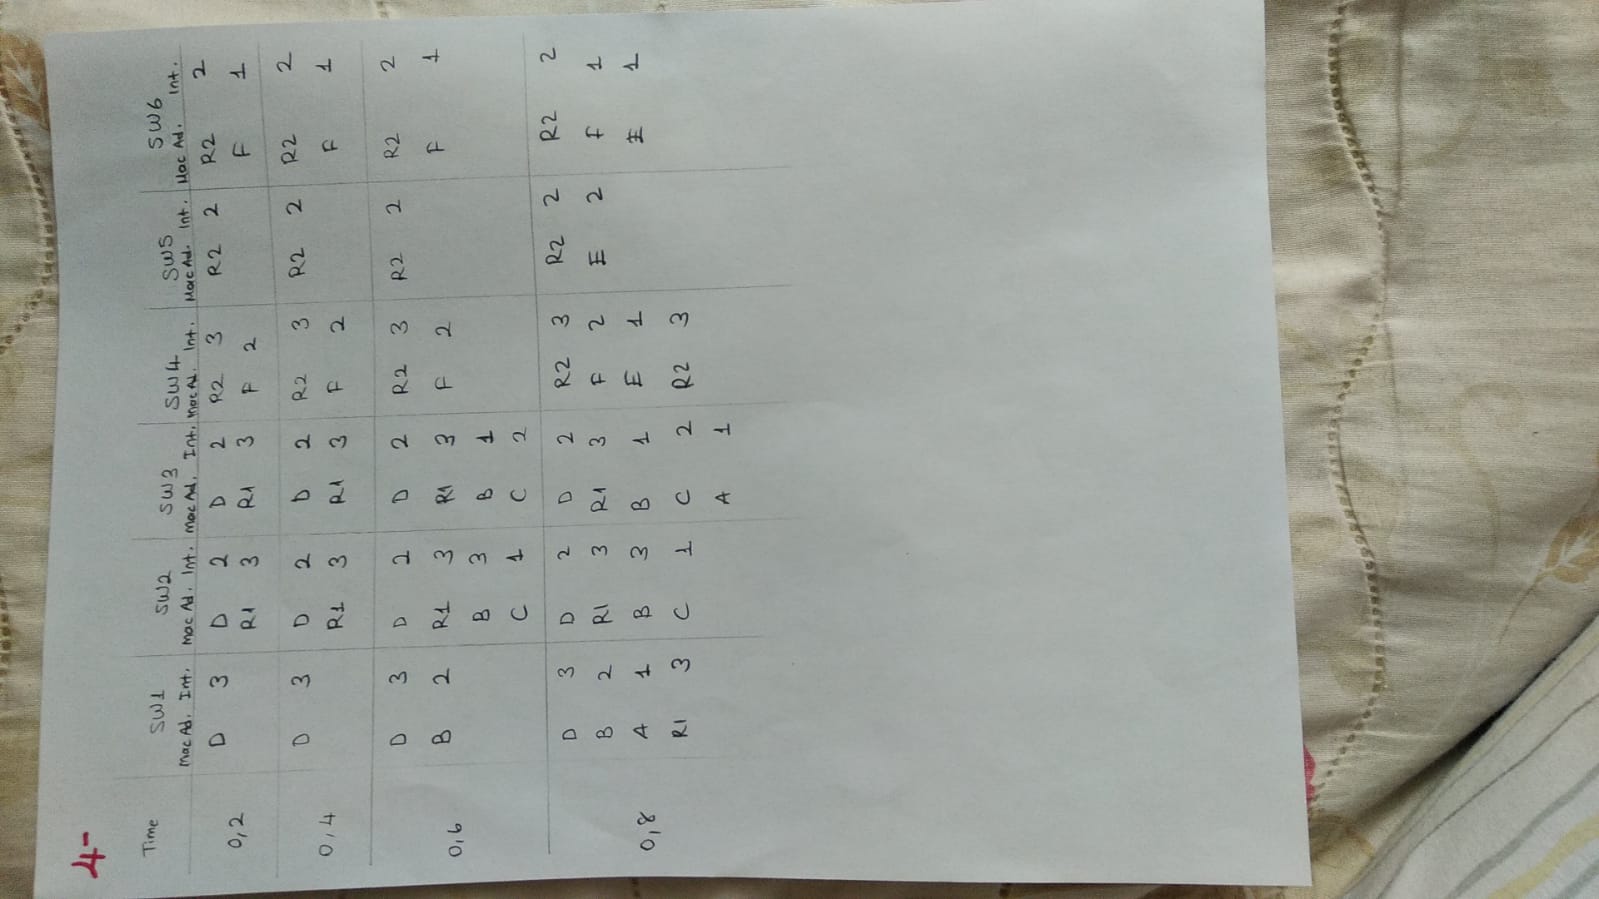 4-
Time SW1 SW2 SW3 SW4 SW5 SW6
Mac Ad. Int. Mac Ad. Int. Mac Ad. Int. Mac Ad. Int. Mac Ad. Int. Mac Ad. Int.
0,2 D 3 D 2 D 2 R2 3 R2 2 R2 2
R1 3 R1 3 F 2 F 1
0,4 D 3 D 2 D 2 R2 3 R2 2 R2 2
R1 3 R1 3 F 2 F 1
0,6 D 3 D 2 D 2 R2 3 R2 2 R2 2
B 2 R1 3 R1 3 F 2 F 1
B 3 B 1
C 1 C 2
0,8 D 3 D 2 D 2 R2 3 R2 2 R2 2
B 2 R1 3 R1 3 F 2 E 2 F 1
A 1 B 3 B 1 E 1 E 1
R1 3 C 1 C 2 R2 3
A 1